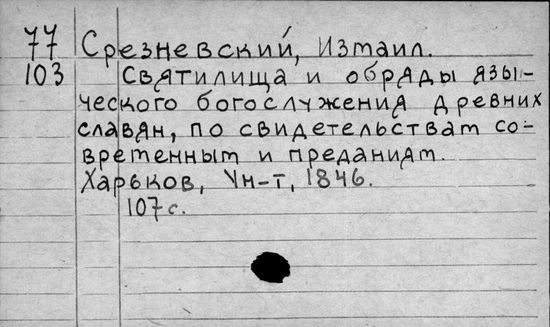 77 Срезневский, Измаил.
103 Святилища и обряды язы-
ческого богослужения древних
славян, по свидетельствам со-
временным и преданиям.
Харьков, Ун-т, 1846.
107 с.